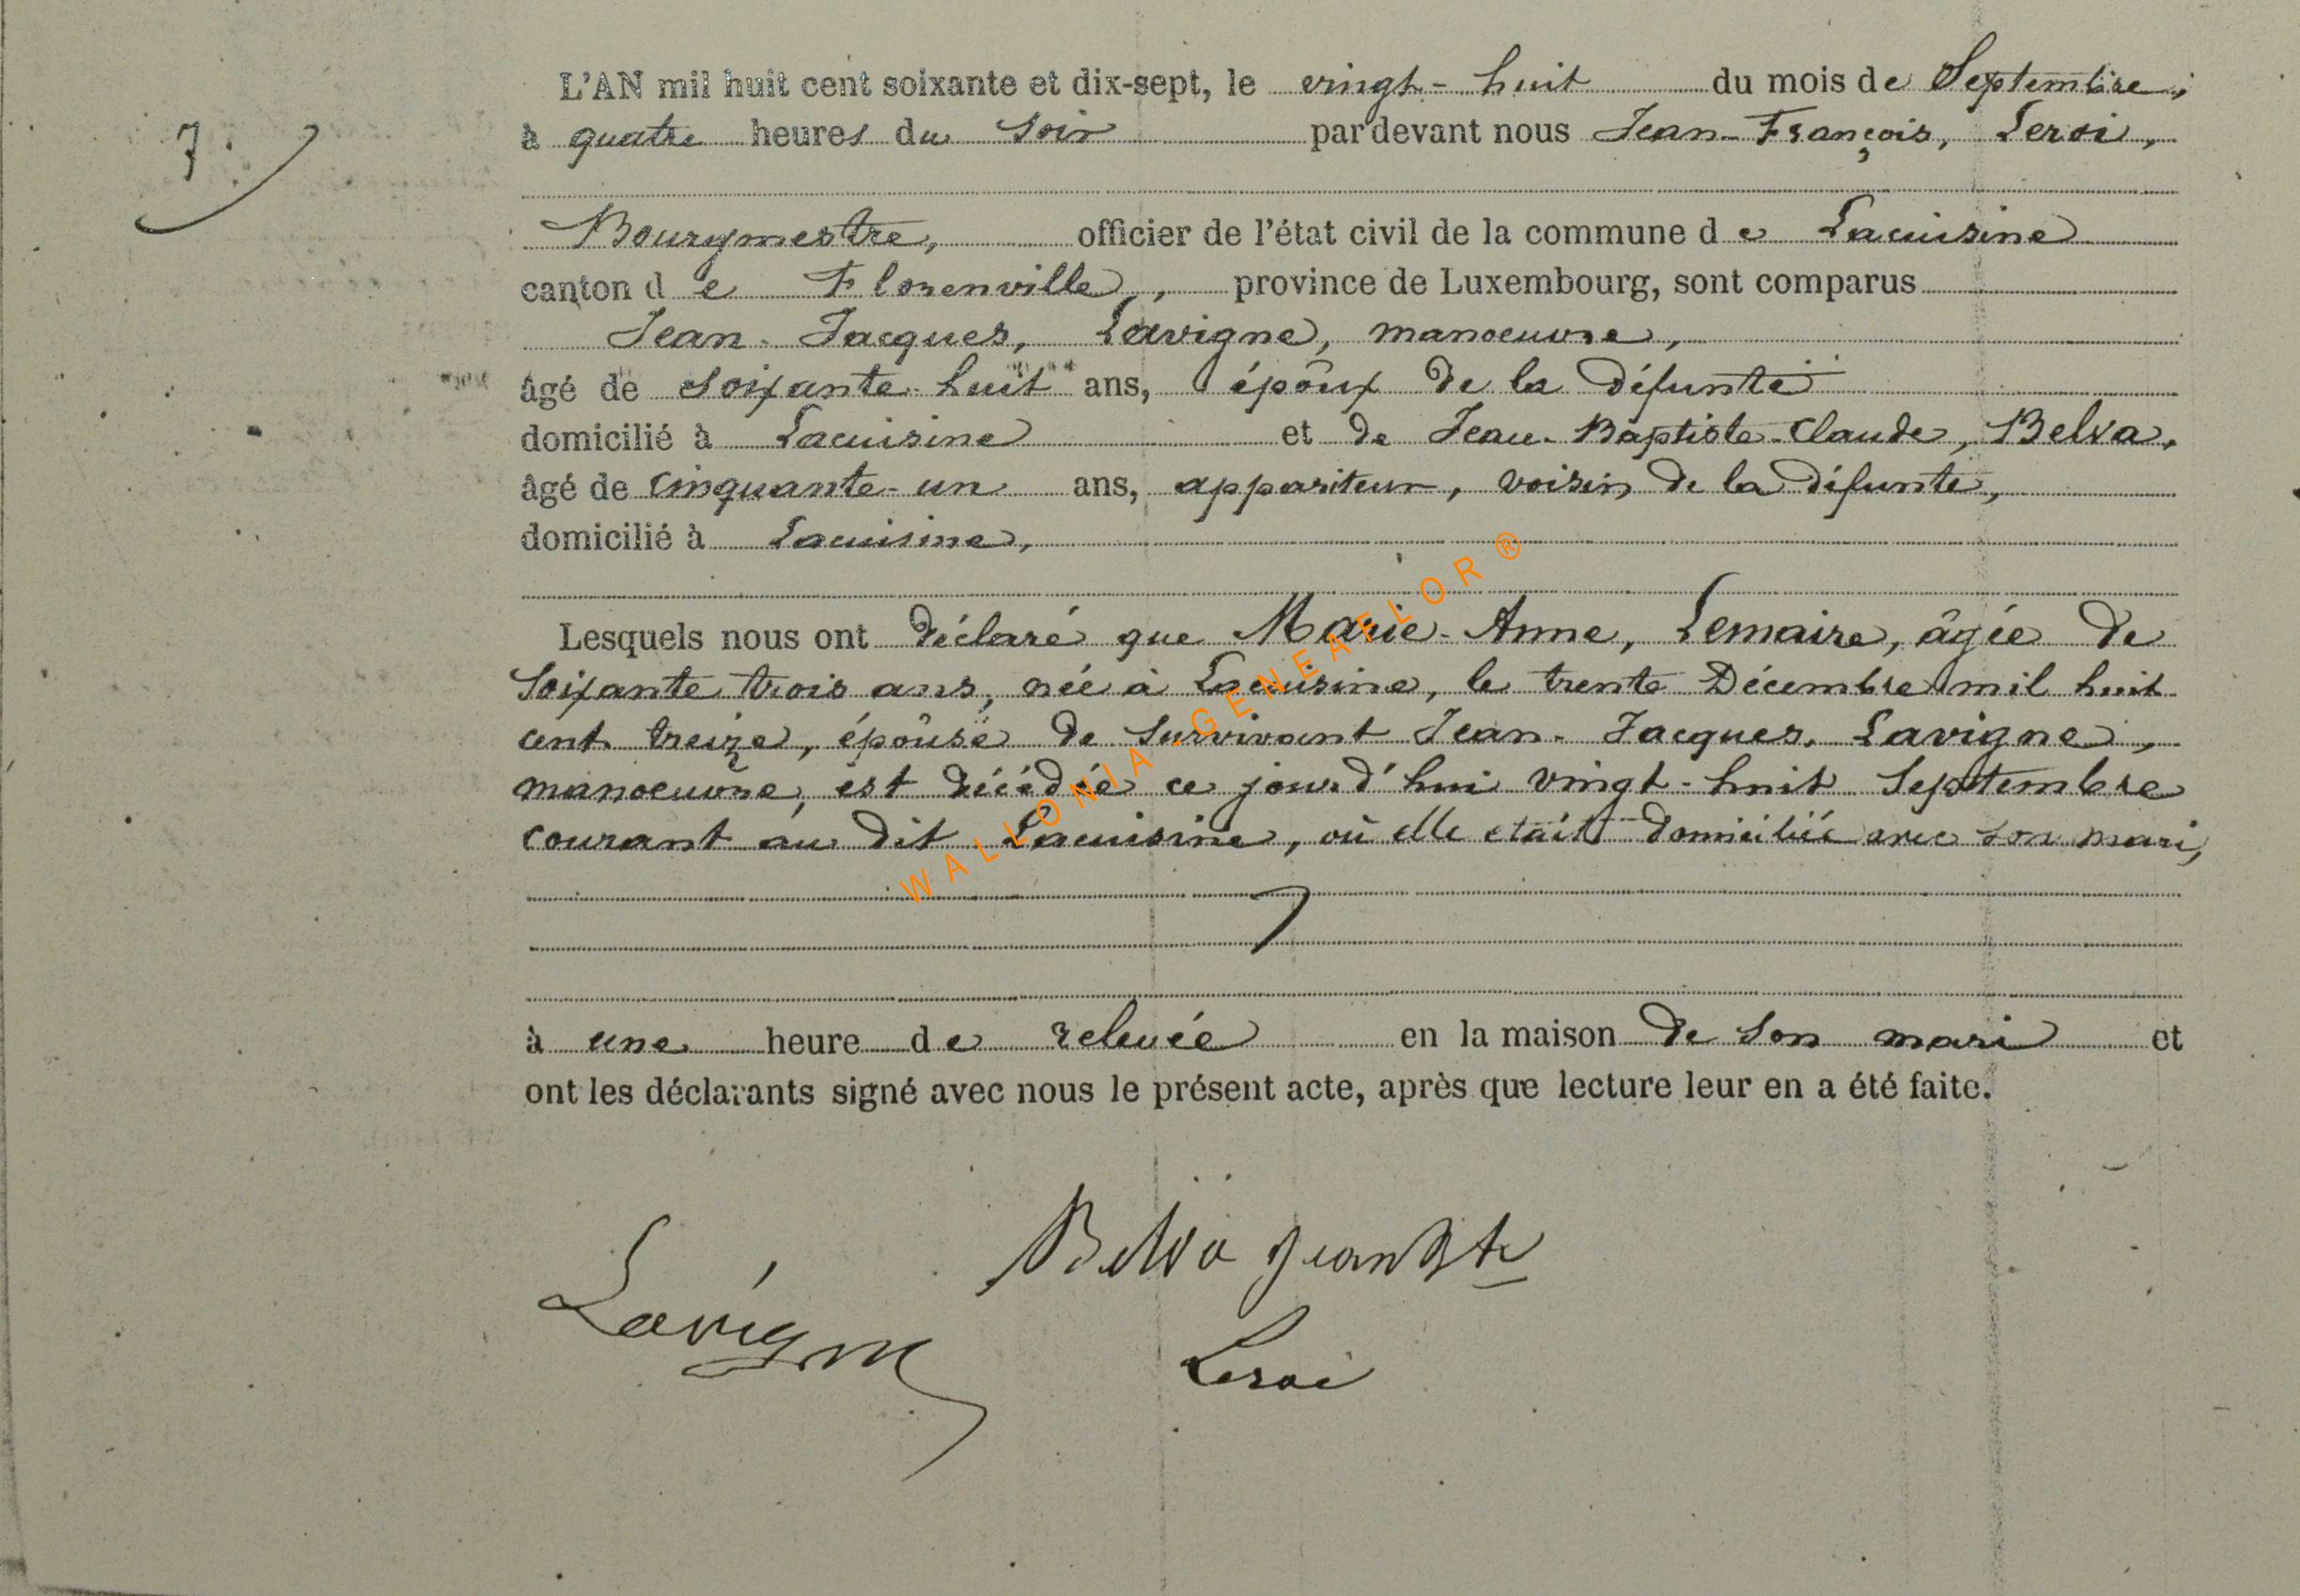 L'AN mil huit cent soixante et dix-sept, le vingt-huit du mois de Septembre,
7.
à quatre heures du soir par devant nous Jean-François, Leroi,
Bourgmestre, officier de l'état civil de la commune de Lacuisine
canton de Florenville, province de Luxembourg, sont comparus
Jean-Jacques, Lavigne, manoeuvre,
âgé de soixante huit ans, époux de la défunte
domicilié à Lacuisine et de Jean-Baptiste-Claude, Belva,
âgé de cinquante-un ans, appariteur, voisin de la défunte,
domicilié à Lacuisine,
Lesquels nous ont déclaré que Marie-Anne, Lemaire, âgée de
soixante trois ans, née à Lacuisine, le trente Décembre mil huit
cent treize, épouse de survivant Jean-Jacques, Lavigne,
manoeuvre, est décédée ce jourd'hui vingt-huit Septembre
courant au dit Lacuisine, où elle était domiciliée avec son mari,
WALLONIA-GENEAFLOR ®
à une heure de relevée en la maison de son mari et
ont les déclarants signé avec nous le présent acte, après que lecture leur en a été faite.
Belva Jean Bte
Lavigne
Leroi